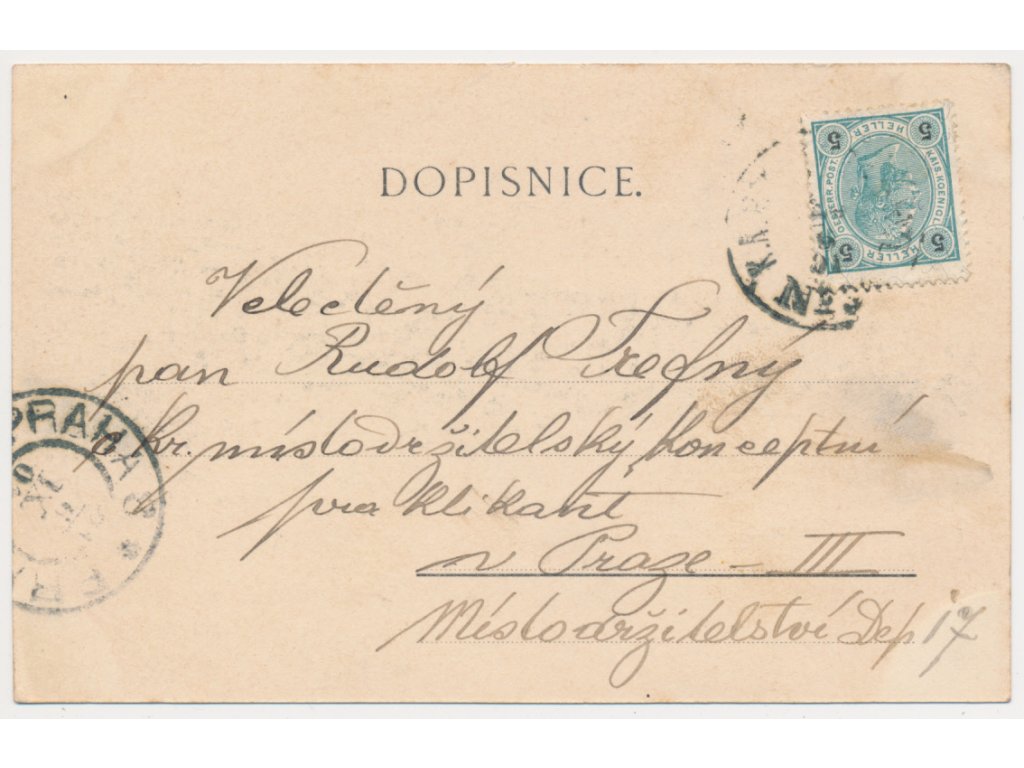 DOPISNICE.
5 HELLER 5
KAIS. KOENIGL. OESTERR. POST.
5 HELLER 5
Velectěný
pan Rudolf
c. kr. místodržitelský konceptní
praktikant
v Praze – III
Místodržitelství Dep. 17
PRAHA